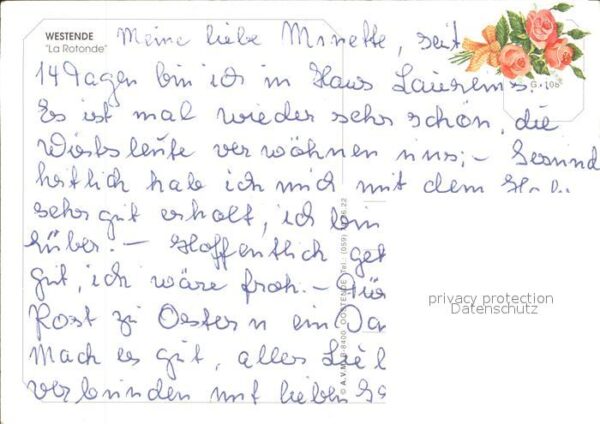 WESTENDE
"La Rotonde"
Meine liebe Minette, seit
14 Tagen bin ich in Haus Laurens.
Es ist mal wieder sehr schön, die
Wirtsleute verwöhnen uns; - Gesund
heitlich hab ich mich mit dem
sehr gut erholt, ich bin
rüber. - Hoffentlich geh
gut, ich wäre froh. - Für
Post zu Ostern ein Dan
Mach es gut, alles Lie
verbunden mit lieben
© A.V.M. B-8400 OOSTENDE Tel.: (059)
privacy protection
Datenschutz